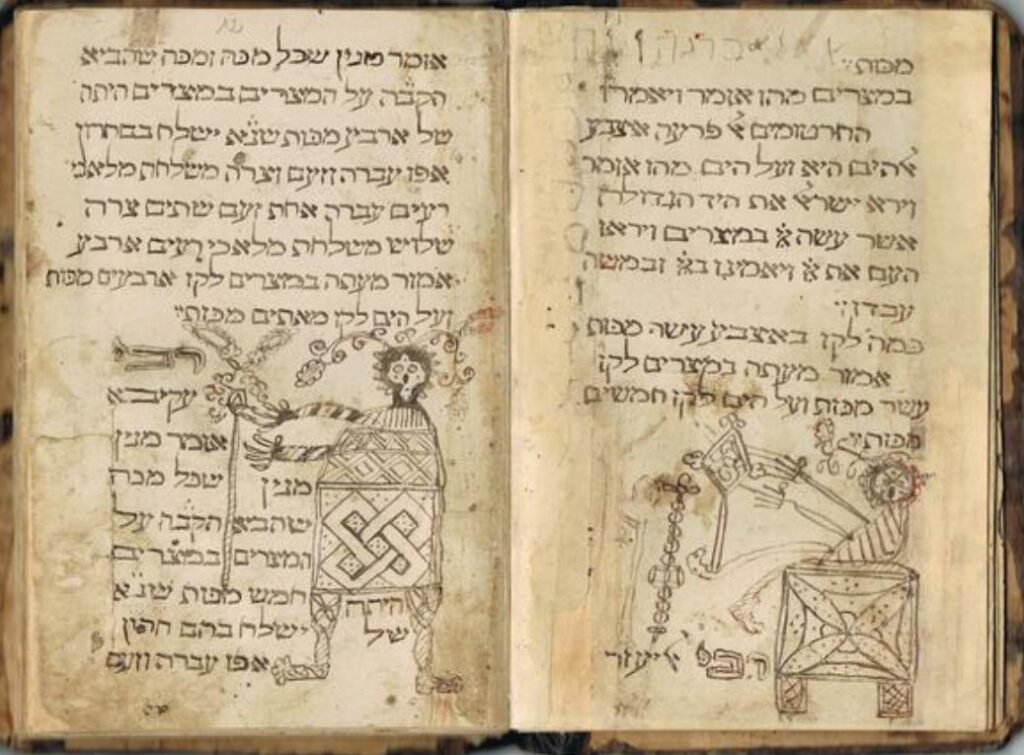 מכות׃
במצרים מהו אומר ויאמרו
החרטומים אל פרעה אצבע
אלהים היא ועל הים מהו אומר
וירא ישראל את היד הגדולה
אשר עשה יי במצרים ויראו
העם את יי ויאמינו ביי ובמשה
עבדו׃
כמה לקו באצבע עשה מכות
אמור מעתה במצרים לקו
עשר מכות ועל הים לקו חמשים
מכות׃
רבי אליעזר
אומר מנין שכל מכה ומכה שהביא
הק״בה על המצריים במצרים היתה
של ארבע מכות שנ״א ישלח בם חרון
אפו עברה וזעם וצרה משלחת מלאכי
רעים עברה אחת זעם שתים צרה
שלוש משלחת מלאכי רעים ארבע
אמור מעתה במצרים לקו ארבעים מכות
ועל הים לקו מאתים מכות׃
רבי
עקיבא
אומר מנין
מנין שכל מכה
שהביא הקבה על
המצרים במצרים
היתה חמש מכות שנ״א
של ישלח בהם חרון
אפו עברה וזעם